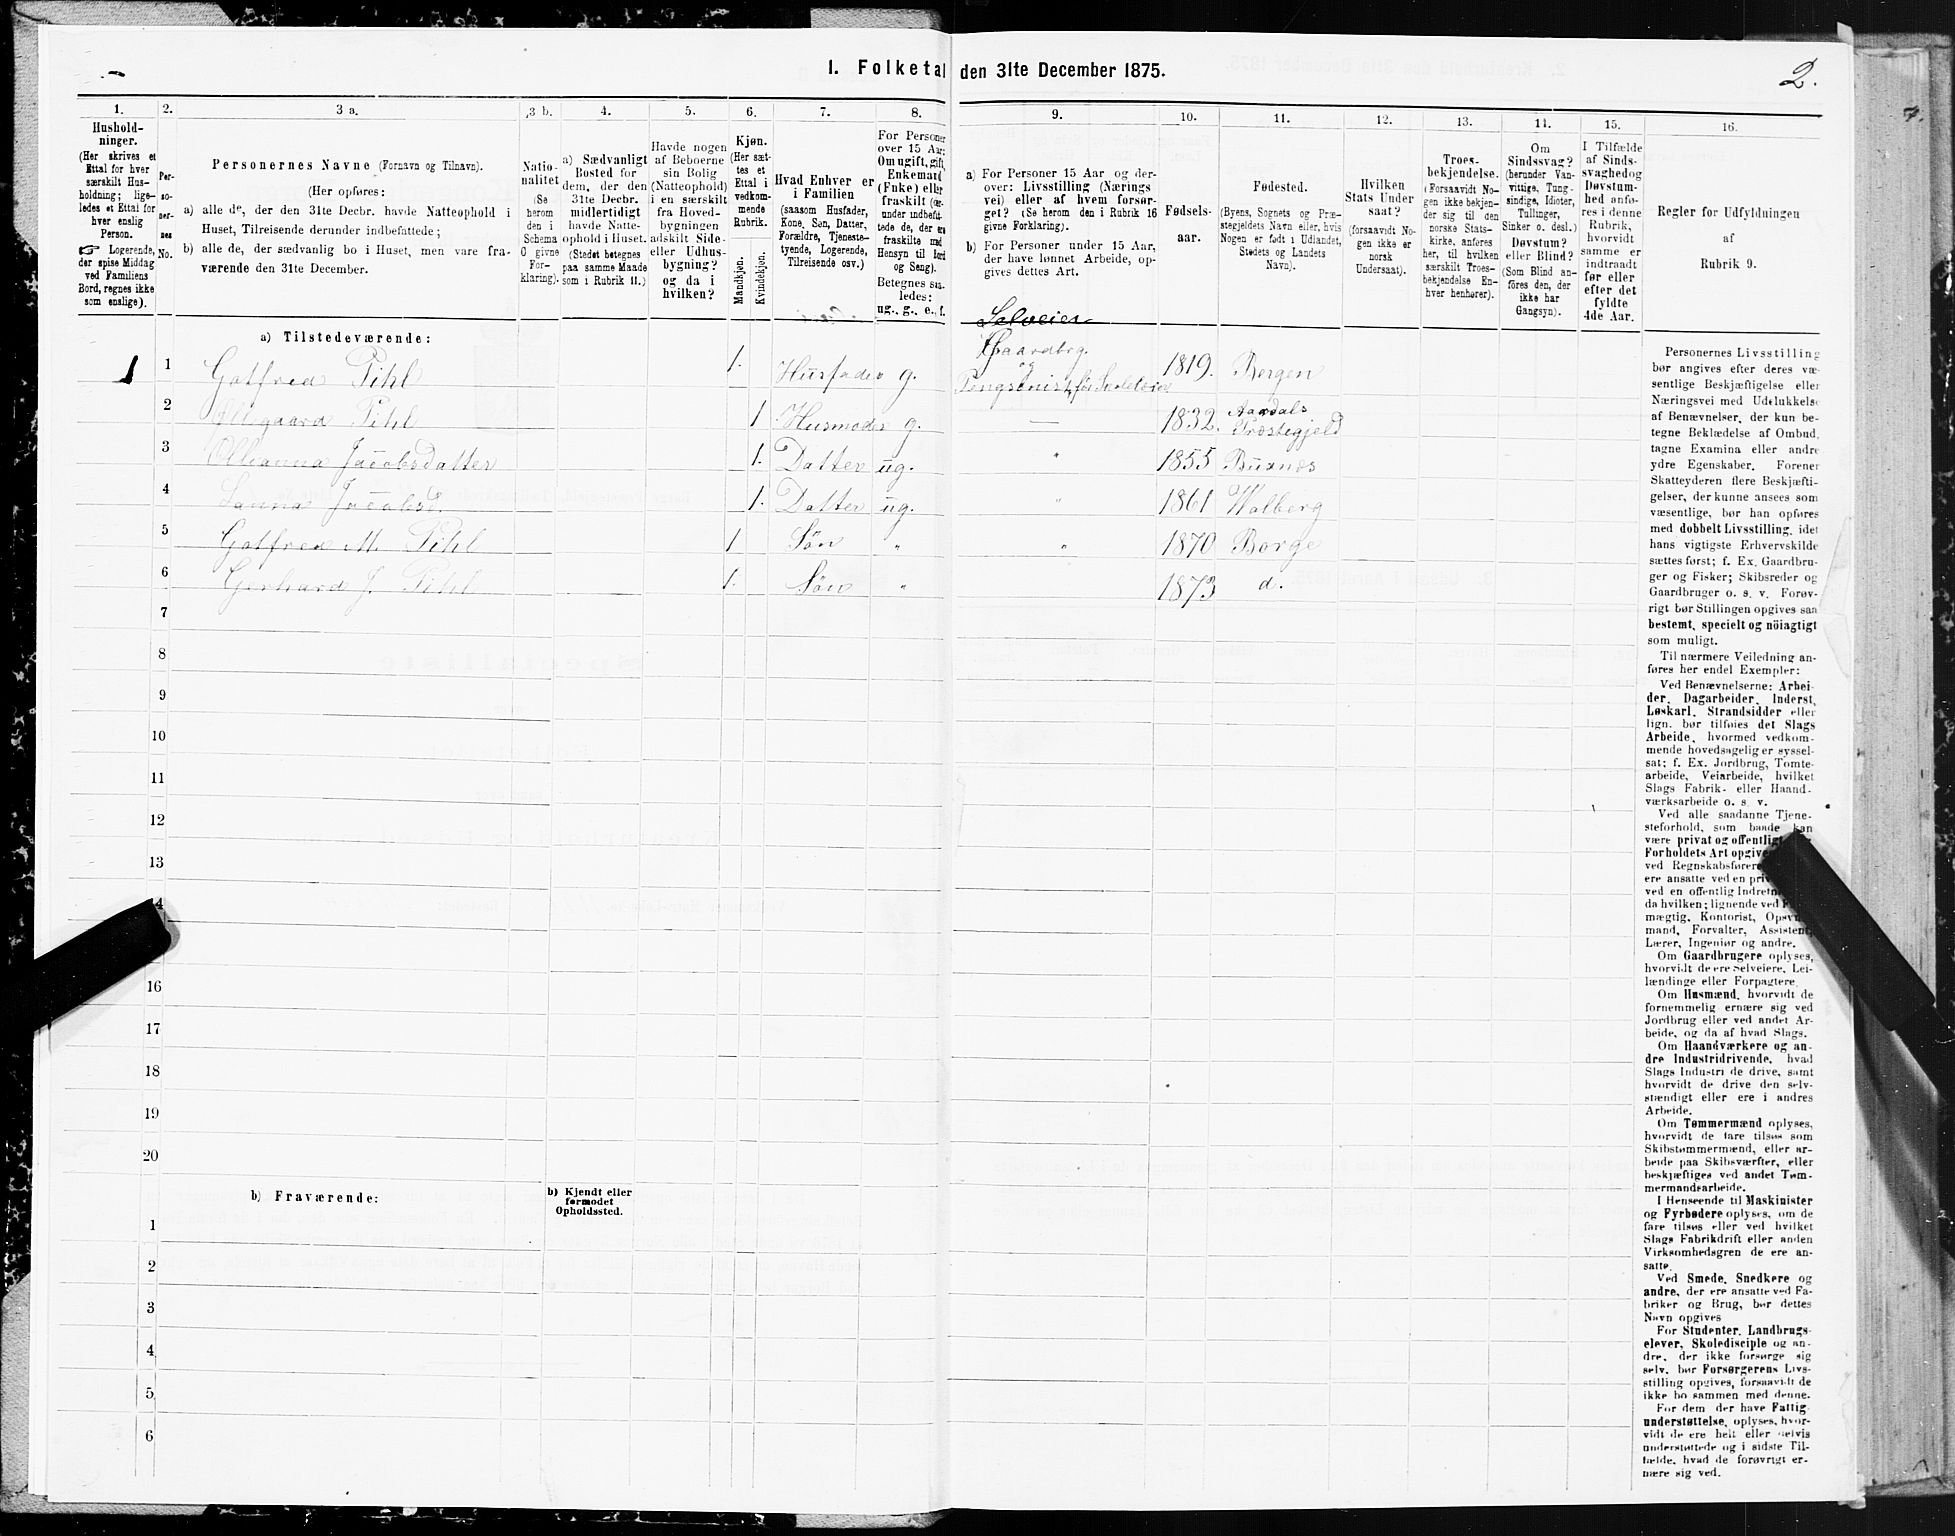 I. Folketal den 31te December 1875.
2.
1.
Husholdninger.
(Her skrives et
Ettal for hver
særskilt Husholdning; ligeledes et Ettal for
hver enslig
Person.
☞ Logerende,
der spise Middag
ved Familiens
Bord, regnes ikke
som enslige).
2.
Personernes
No.
3 a.
Personernes Navne (Fornavn og Tilnavn).
(Her opføres:
a) alle de, der den 31te Decbr. havde Natteophold i
Huset, Tilreisende derunder indbefattede;
b) alle de, der sædvanlig bo i Huset, men vare fraværende den 31te December.
3 b.
Nationalitet
(Se
herom
den i
Schema
0 givne
Forklaring).
4.
a) Sædvanligt
Bosted for
dem, der den
31te Decbr.
midlertidigt
havde Natteophold i Huset.
(Stedet betegnes
paa samme Maade
som i Rubrik 11.)
5.
Havde nogen
af Beboerne
sin Bolig
(Natteophold)
i en særskilt
fra Hovedbygningen
adskilt Side-
eller Udhusbygning?
og da i
hvilken?
6.
Kjøn.
(Her sættes et
Ettal i
vedkommende
Rubrik.
Mandkjøn.
Kvindekjøn.
7.
Hvad Enhver er
i Familien
(saasom Husfader,
Kone, Søn, Datter,
Forældre, Tjenestetyende, Logerende,
Tilreisende osv.)
8.
For Personer
over 15 Aar:
Om ugift, gift,
Enkemand
(Enke) eller
fraskilt (derunder indbefattede de, der ere
fraskilte med
Hensyn til Bord
og Seng).
Betegnes saaledes:
ug., g., e., f.
9.
a) For Personer 15 Aar og derover: Livsstilling (Næringsvei) eller af hvem forsørget? (Se herom den i Rubrik 16
givne Forklaring).
b) For Personer under 15 Aar,
der have lønnet Arbeide, opgives dettes Art.
10.
Fødselsaar.
11.
Fødested.
(Byens, Sognets og Præstegjeldets Navn eller, hvis
Nogen er født i Udlandet,
Stedets og Landets
Navn).
12.
Hvilken
Stats Undersaat?
(forsaavidt Nogen ikke er
norsk
Undersaat).
13.
Troesbekjendelse.
(Forsaavidt Nogen ikke bekjender sig til den
norske Statskirke, anføres
her, til hvilken
særskilt Troesbekjendelse Enhver henhører).
14.
Om
Sindssvag?
(herunder Vanvittige, Tungsindige, Idioter,
Tullinger,
Sinker o. desl.)
Døvstum?
eller Blind?
(Som Blind anføres den, der
ikke har
Gangsyn).
15.
I Tilfælde
af Sindssvaghed og
Døvstumhed anføres i denne
Rubrik,
hvorvidt
samme er
indtraadt
før eller
efter det
fyldte
4de Aar.
16.
Regler for Udfyldningen
af
Rubrik 9.
a) Tilstedeværende:
Selveier
1 1 Gotfred Pihl 1. Husfader g. Gaardbrg. og Pengsonist 1819. Bergen
2 Ollegaard Pihl 1 Husmoder g. — 1832. Aardals Præstegjeld
3 Ollianna Jacobsdatter 1. Datter ug. " 1855 Buxnæs
4 Sanna Jacobsd. 1. Datter ug. " 1861 Walberg
5 Gotfred M. Pihl 1 Søn " " 1870 Borge
6 Gerhard J. Pihl 1. Søn " 1873 d.
7
8
9
10
11
12
13
4
16
17
18
19
20
b) Fraværende:
b) Kjendt eller
formodet
Opholdssted.
1
2
3
4
5
6
Personernes Livsstilling
bør angives efter deres væsentlige Beskjæftigelse eller
Næringsvei med Udelukkelse
af Benævnelser, der kun betegne Beklædelse af Ombud,
tagne Examina eller andre
ydre Egenskaber. Forener
Skatteyderen flere Beskjæftigelser, der kunne ansees som
væsentlige, bør han opføres
med dobbelt Livsstilling, idet
hans vigtigste Erhvervskilde
sættes først; f. Ex. Gaardbruger og Fisker; Skibsreder og
Gaardbruger o. s. v. Forøvrigt bør Stillingen opgives saa
bestemt, specielt og nöiagtigt
som muligt.
Til nærmere Veiledning anføres her endel Exempler:
Ved Benævnelserne: Arbeider, Dagarbeider, Inderst,
Løskarl, Strandsidder eller
lign. bør tilføies det Slags
Arbeide, hvormed vedkommende hovedsagelig er sysselsat; f. Ex. Jordbrug, Tomtearbeide, Veiarbeide, hvilket
Slags Fabrik- eller Haandværksarbeide o. s. v.
Ved alle saadanne Tjenesteforhold, som baade kan
være privat og offentligt
Forholdets Art opgives
ved Regnskabsførere
ere ansatte ved en
ved en offentlig
da hvilken; lignende ved
mægtig, Kontorist, Opsynsmand, Forvalter, Assistent,
Lærer, Ingeniør og andre.
Om Gaardbrugere oplyses,
hvorvidt de ere Selveiere, Leilændinge eller Forpagtere.
Om Husmænd, hvorvidt de
fornemmelig ernære sig ved
Jordbrug eller ved andet Arbeide, og da af hvad Slags.
Om Haandværkere og andre Industridrivende, hvad
Slags Industri de drive, samt
hvorvidt de drive den selvstændigt eller ere i andres
Arbeide.
Om Tømmermænd oplyses,
hvorvidt de fare tilsøs som
Skibstømmermænd, eller arbeide paa Skibsværfter, eller
beskjæftiges ved andet Tømmermandsarbeide.
I Henseende til Maskinister
og Fyrbødere oplyses, om de
fare tilsøs eller ved hvilket
Slags Fabrikdrift eller anden
Virksomhedsgren de ere ansatte.
Ved Smede, Snedkere og
andre, der ere ansatte ved Fabriker og Brug, bør dettes
Navn opgives
For Studenter, Landbrugselever, Skoledisciple og andre, der ikke forsørge sig
selv, bør Forsørgerens Livsstilling opgives, forsaavidt de
ikke bo sammen med denne.
For dem der have Fattigunderstøttelse, oplyses, hvorvidt de ere helt eller delvis
understøttede og i sidste Tilfælde, hvad de forøvrigt ernære sig ved.